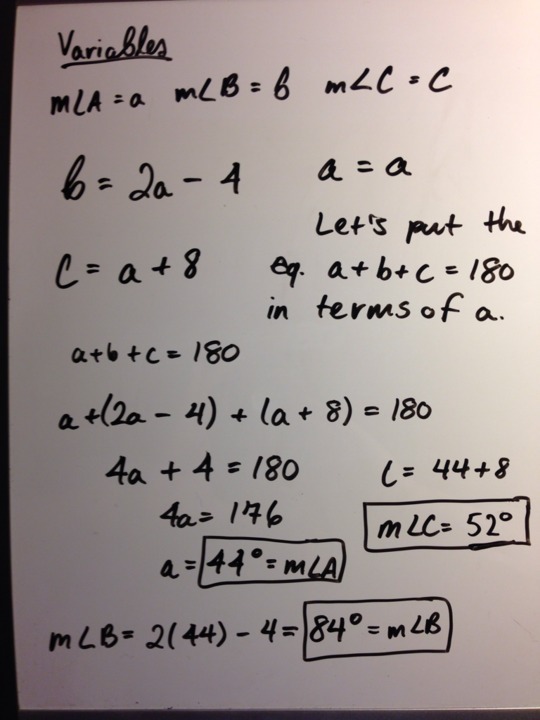 Variables
m∠A = a   m∠B = b   m∠C = C
b = 2a - 4   a = a
Let's put the
C = a + 8   eq. a + b + c = 180
in terms of a.
a + b + c = 180
a + (2a - 4) + (a + 8) = 180
4a + 4 = 180   C = 44 + 8
4a = 176   m∠C = 52°
a = 44° = m∠A
m∠B = 2(44) - 4 = 84° = m∠B